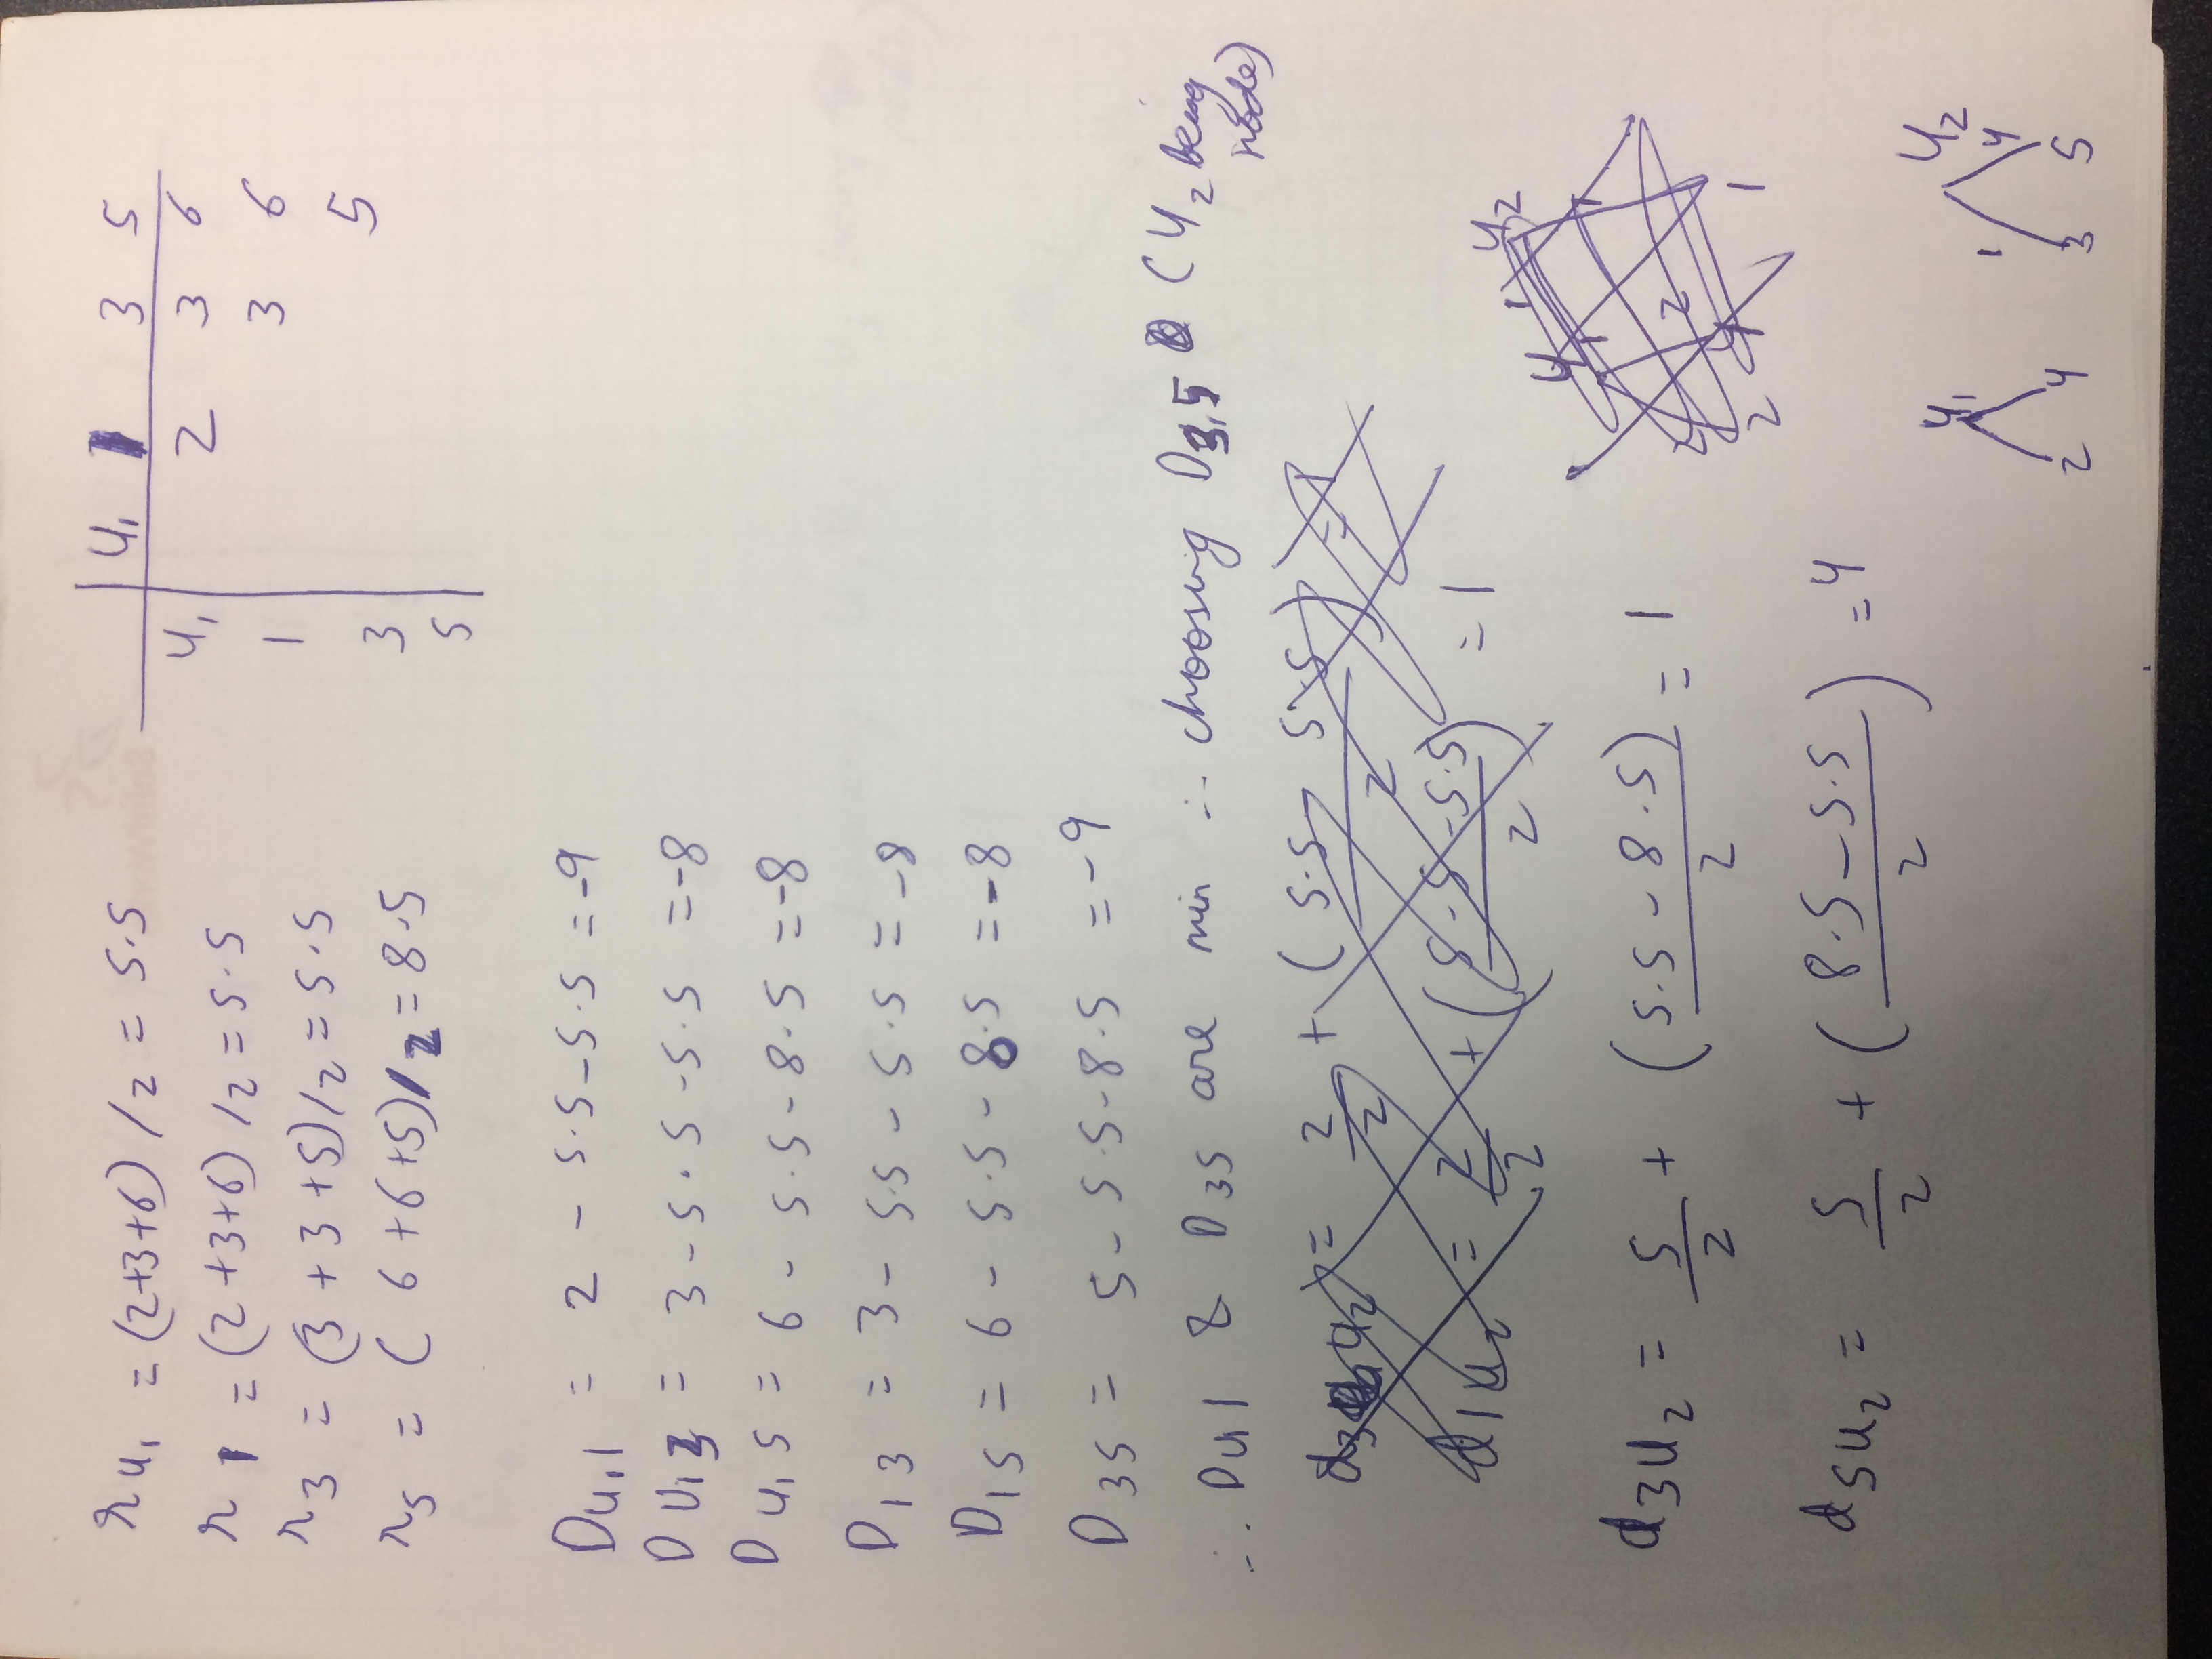 r u₁ = (2+3+6) /2 = 5.5
r 1 = (2+3+6) /2 = 5.5
r 3 = (3 + 3 + 5)/2 = 5.5
r 5 = ( 6 + 6 + 5)/2 = 8.5
u₁ 1 3 5
u₁ 2 3 6
1 3 6
3 5
5
D u₁ 1 = 2 - 5.5 - 5.5 = -9
D u₁ 3 = 3 - 5.5 - 5.5 = -8
D u₁ 5 = 6 - 5.5 - 8.5 = -8
D 1 3 = 3 - 5.5 - 5.5 = -8
D 1 5 = 6 - 5.5 - 8.5 = -8
D 3 5 = 5 - 5.5 - 8.5 = -9
∴ D u₁ 1 & D 3 5 are min ∴ choosing D 3,5 (u₂ being node)
d 3 u₂ = 2/2 + (5.5 5.5)/2 = 1
d 1 u₂ = 2/2 + (5.5 - 5.5)/2 = 1
u₂
1
u₁
1
2
2 1
d 3 u₂ = 5/2 + (5.5 - 8.5)/2 = 1
d 5 u₂ = 5/2 + (8.5 - 5.5)/2 = 4
u₁ u₂
1 4
2 4 3 5